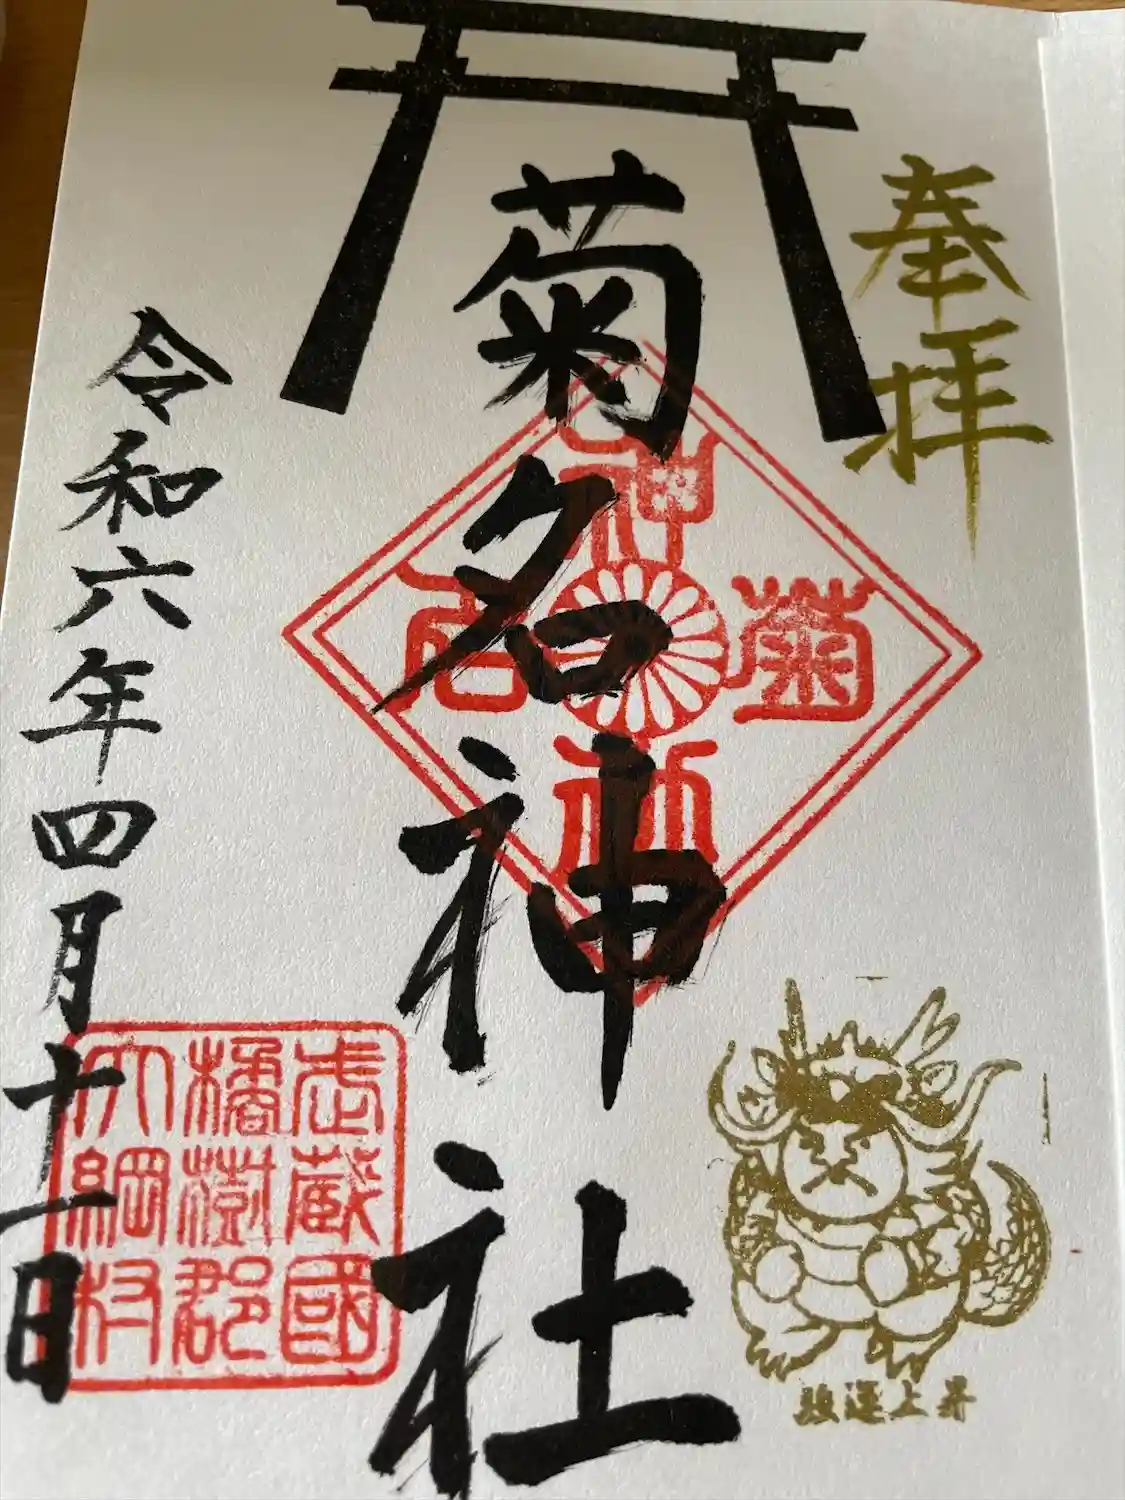 奉拝
菊名神社
菊
名
神
社
運上昇
令和六年四月十一日
武蔵國
橘樹郡
大綱村